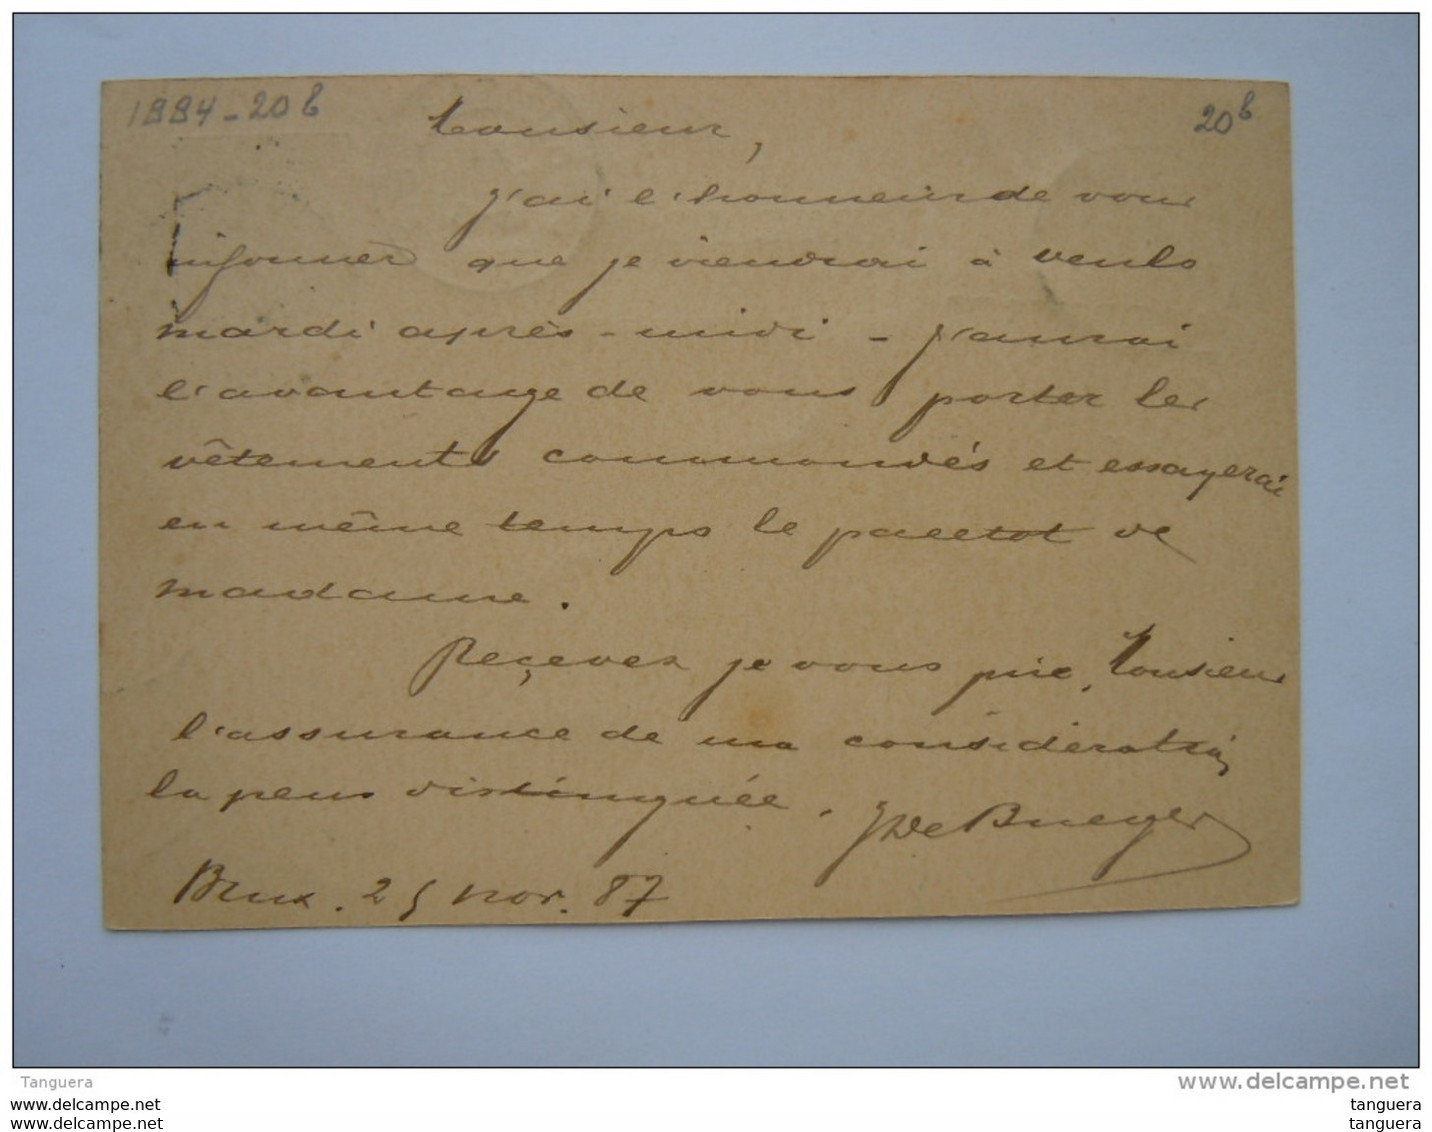 1884 - 20 b
20 b
Monsieur,
j'ai l'honneur de vous
informer que je viendrai à Venlo
mardi après-midi - j'aurai
l'avantage de vous porter les
vêtements commandés et essayerai
en même temps le paletot de
madame.
Recevez, je vous prie, Monsieur
l'assurance de ma considération
la plus distinguée.
Brux. 25 nov. 87
Tanguera
www.delcampe.net
www.delcampe.net
tanguera
www.delcampe.net
tanguera